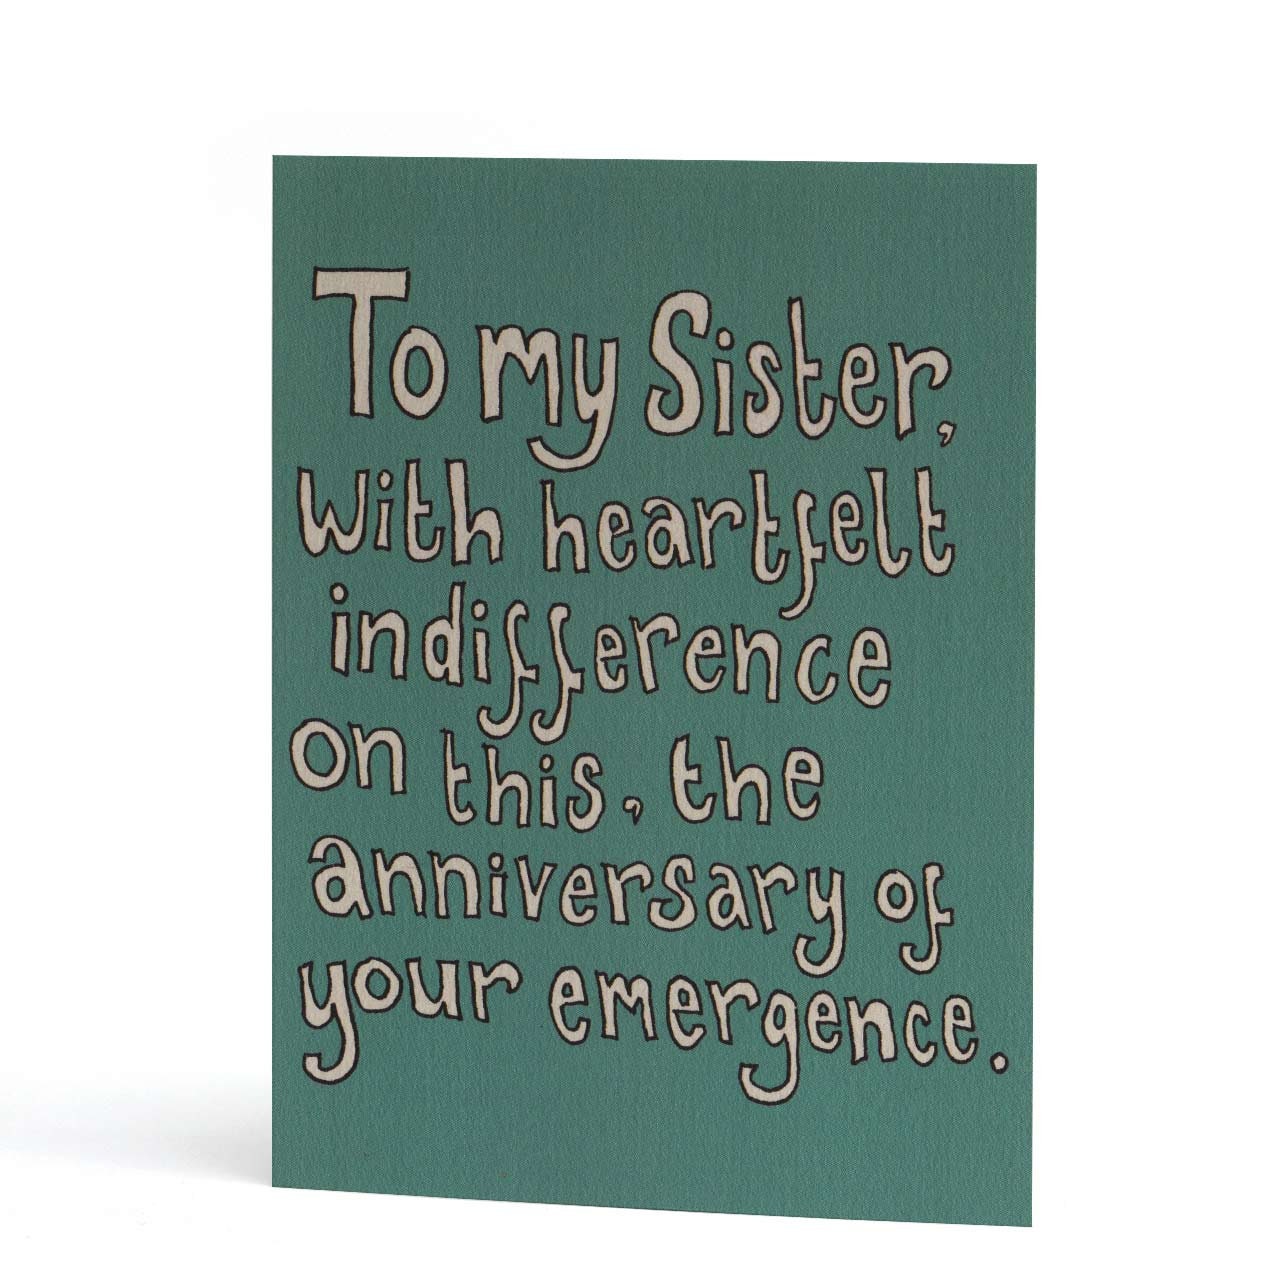 To my Sister,
with heartfelt
indifference
on this, the
anniversary of
your emergence.